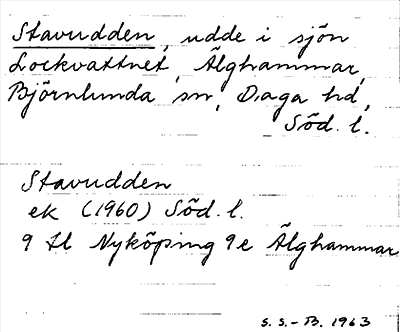 Stavudden, udde i sjön
Lockvattnet, Älghammar,
Björnlunda sn, Daga hd,
Söd. l.
Stavudden
ek (1960) Söd. l.
9 H Nyköping 9 e Älghammar
S. S.-B. 1963